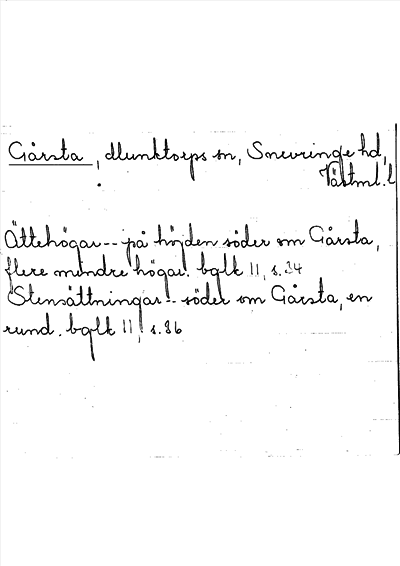 Gårsta, Munktorps sn, Snevringe hd,
Västml. l
Ättehögar -- på höjden söder om Gårsta,
flere mindre högar. bglk 11, s. 34
Stensättningar -- söder om Gårsta, en
rund. bglk 11, s. 36